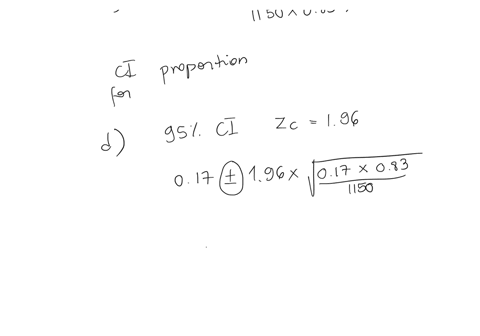 CI proportion
for
d) 95% CI Zc = 1.96
0.17 ± 1.96 × √(0.17 × 0.83 / 1150)